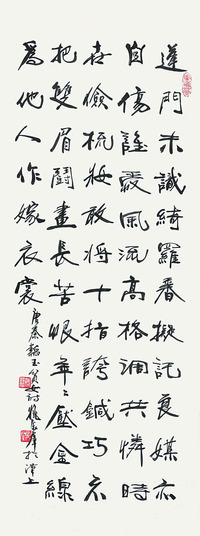 蓬門未識綺羅香擬託良媒亦
自傷誰愛風流高格調共憐時
世儉梳妝敢將十指誇鍼巧不
把雙眉鬪畫長苦恨年々壓金線
爲他人作嫁衣裳
唐秦韜玉貧女詩 於津上